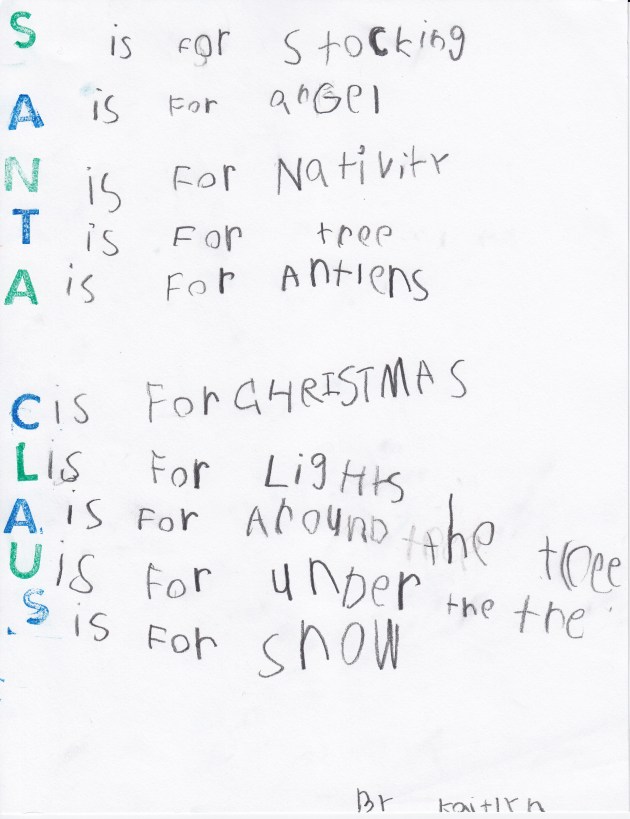 S is for Stocking
A is For anGel
N is For Nativity
T is For tree
A is For Antlens
C is For CHRISTMAS
L is For LigHts
A is For Around the tree
U is For unDer the tre
S is For snow
By kaitlyn